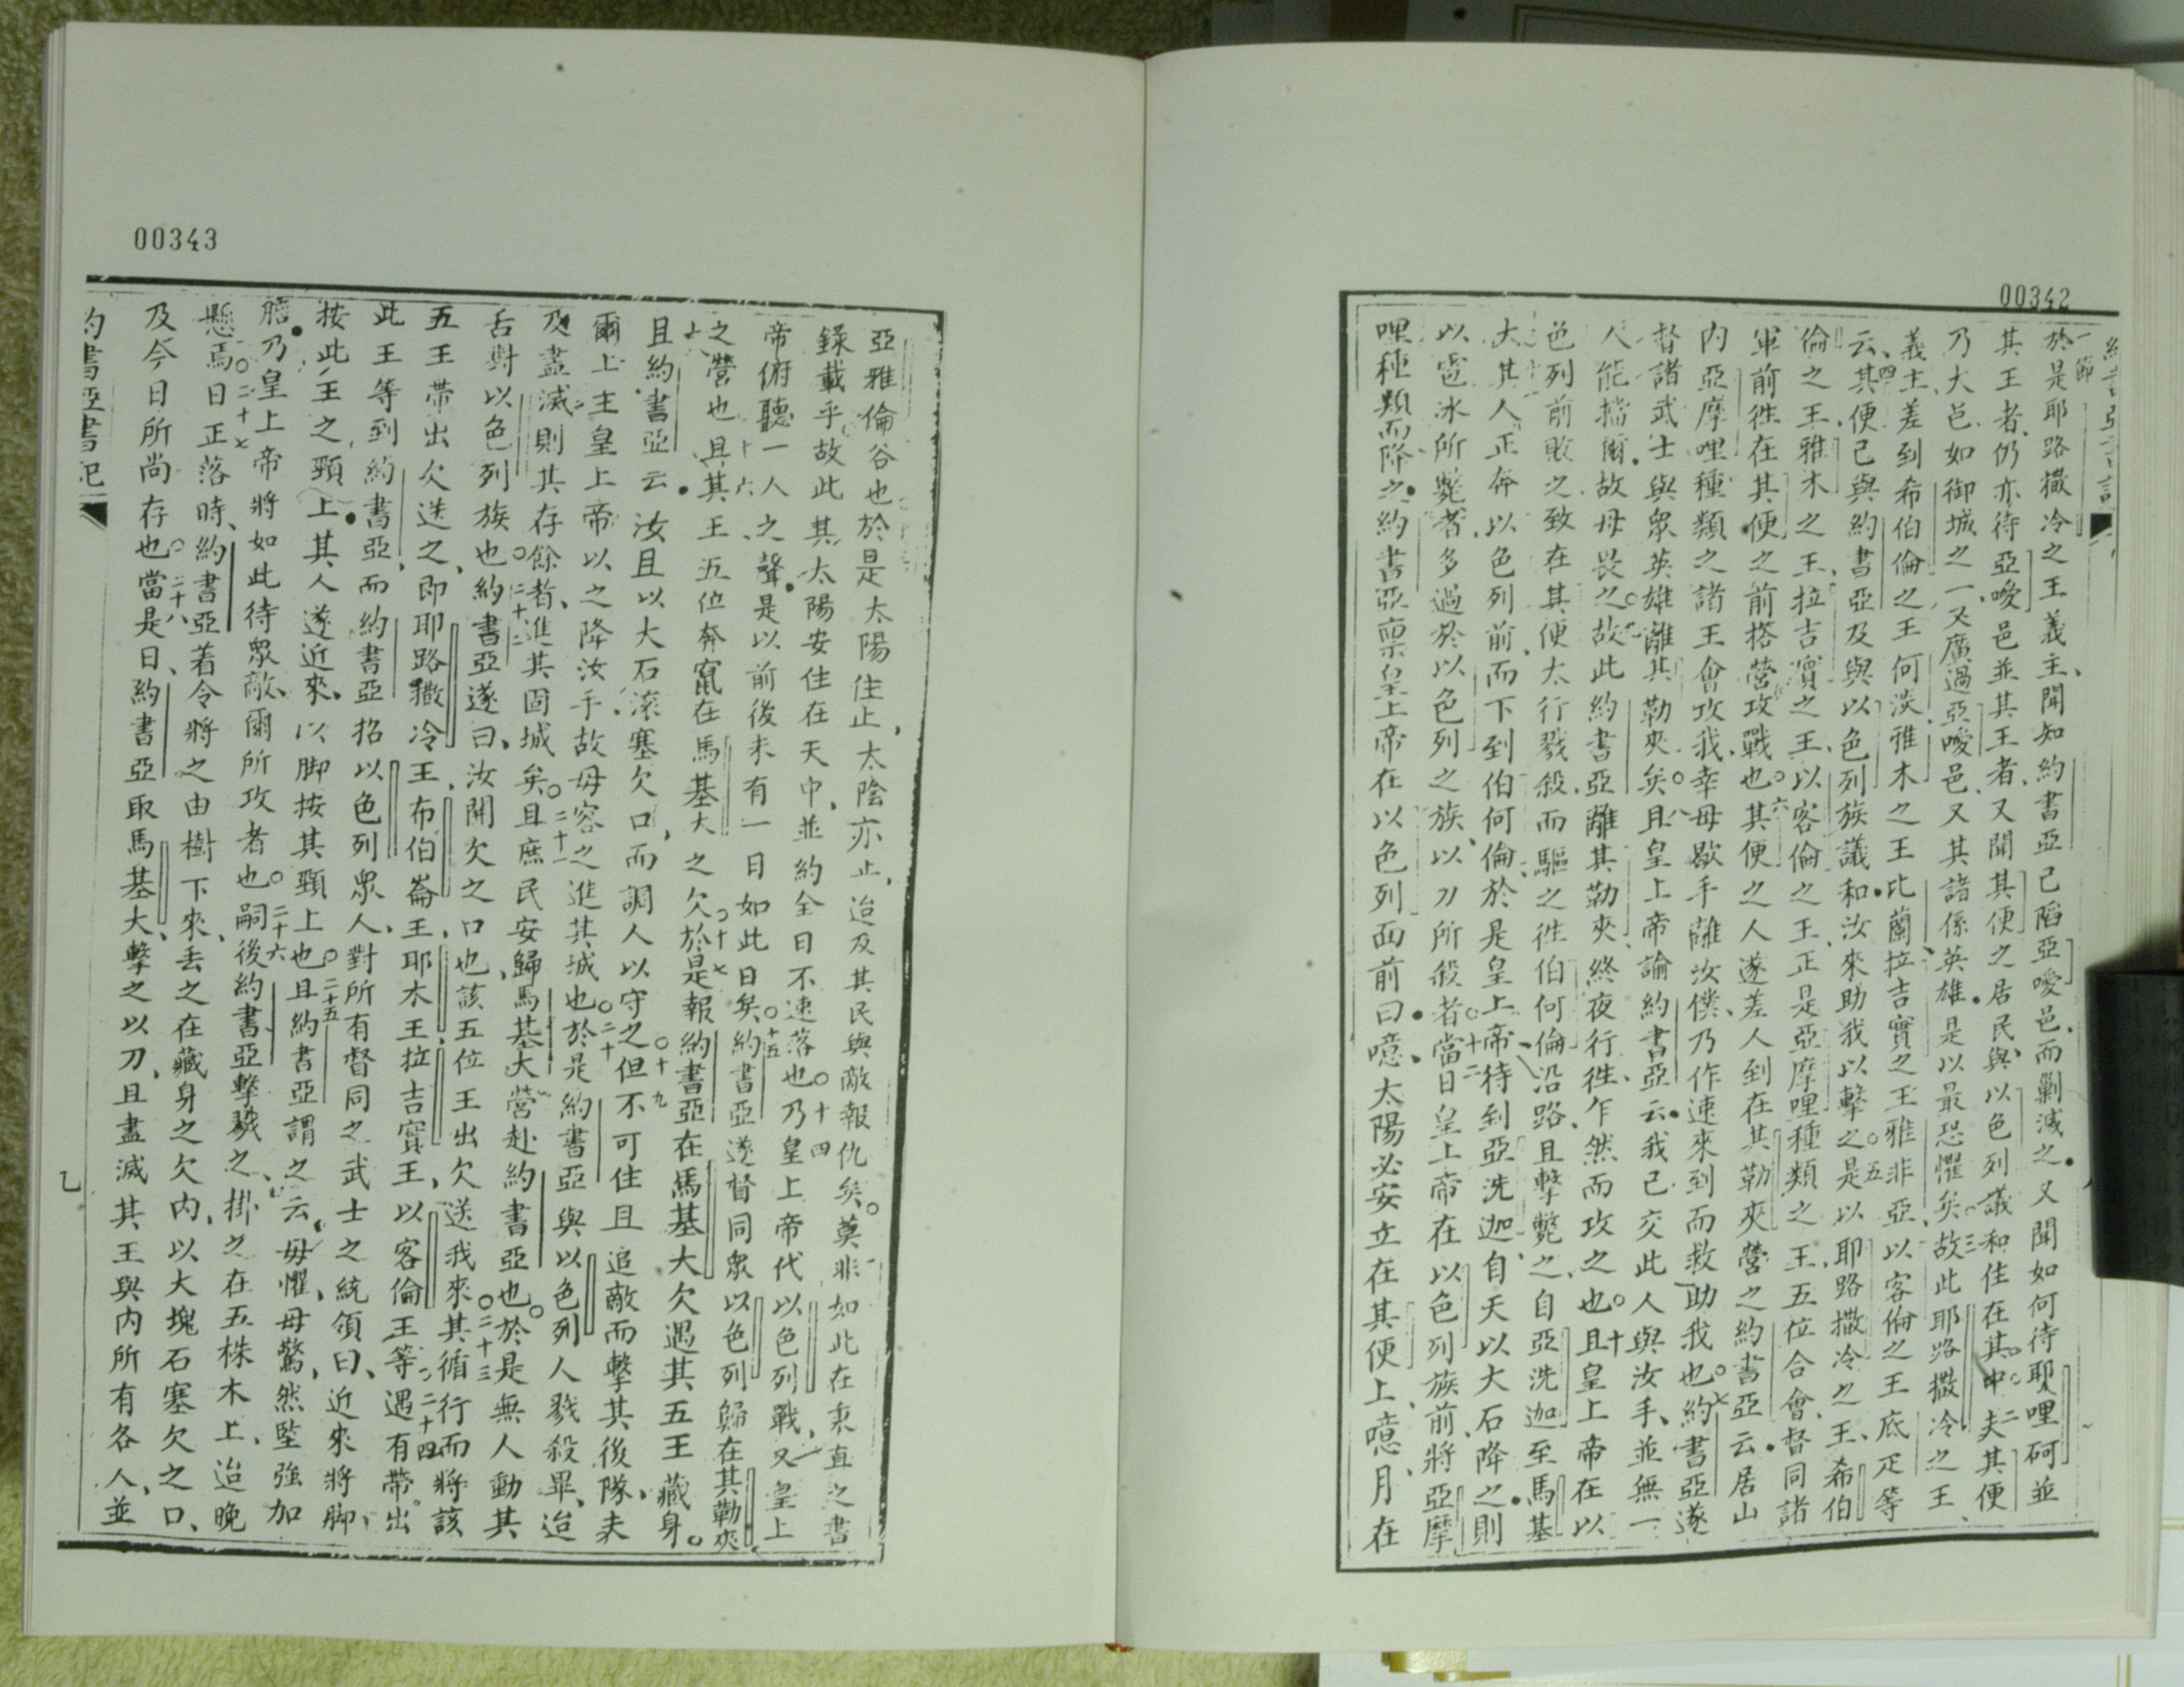 00342
約書亞書記
一節
於是耶路撒冷之王義主、聞知約書亞己陷亞噯邑、而剿滅之。又聞如何待耶哩砢並
其王者、仍亦待亞噯邑並其王者、又聞其便之居民、與以色列議和住在其中。二夫其便
乃大邑、如御城之一、又廣過亞噯邑、又其諸係英雄。是以最恐懼矣。三故此耶路撒冷之王、
義主、差到希伯倫之王何淡、雅木之王比蘭、拉吉實之王雅非亞、以客倫之王底疋等
云、四其便己與約書亞及與以色列族議和。汝來助我以擊之。五是以耶路撒冷之王、希伯
倫之王、雅木之王、拉吉實之王、以客倫之王、正是亞摩哩種類之王五位合會、督同諸
軍前徃在其便之前搭營攻戰也。六其便之人遂差人到在其勒夾營之約書亞。云居山
內亞摩哩種類之諸王會攻我、幸毋歇手離汝僕、乃作速來到而救助我也。七約書亞遂
督諸武士與眾英雄離其勒夾矣。八且皇上帝諭約書亞云。我己交此人與汝手、並無一
人能擋爾。故毋畏之。九故此約書亞離其勒夾、終夜行徃、乍然而攻之也。十且皇上帝在以
色列前敗之致在其便大行戮殺、而驅之徃伯何倫沿路、且擊斃之、自亞洗迦至馬基
大。其人正奔以色列前、而下到伯何倫、於是皇上帝、待到亞洗迦、自天以大石降之、則
以雹冰所斃者、多過於以色列之族、以刀所殺者。十二當日皇上帝在以色列族前、將亞摩
哩種類而降之。約書亞禀皇上帝在以色列面前曰。噫、太陽必安立在其便上、噫、月在
00343
亞雅倫谷也於是太陽住止、太陰亦止、迨及其民與敵報仇矣。莫非如此在秉直之書
錄載乎。故此其太陽安住在天中、並約全日不速落也。十四乃皇上帝代以色列戰、又皇上
帝俯聽一人之聲。是以前後未有一日如此日矣。十五約書亞遂督同眾以色列歸在其勒夾
之營也。十六且其王五位奔竄在馬基大之欠。十七於是報約書亞在馬基大欠遇其五王藏身。
十八且約書亞云。汝且以大石滚塞欠口、而調人以守之。十九但不可住且追敵而擊其後隊、未
爾上主皇上帝以之降汝手、故毋容之進其城也。二十於是約書亞與以色列人戮殺畢、迨
及盡滅、則其存餘者、進其固城矣。二十一且庶民安歸馬基大營、赴約書亞也。於是無人動其
舌對以色列族也。二十二約書亞遂曰、汝開欠之口也、該五位王出欠送我來。二十三其循行而將該
五王帶出欠送之、即耶路撒冷王、布伯崙王、耶木王、拉吉實王、以客倫王等。二十四遇有帶出
此王等到約書亞、而約書亞招以色列眾人、對所有督同之武士之統領曰、近來將脚、
按此王之頸上。其人遂近來、以脚按其頸上也。二十五且約書亞謂之云、毋懼、毋驚、然堅強加
膽。乃皇上帝將如此待眾敵、爾所攻者也。二十六嗣後約書亞擊戮之、掛之在五株木上、迨晚
懸焉。二十七日正落時、約書亞着令將之由樹下來、丢之在藏身之欠內、以大塊石塞欠之口、
及今日所尚存也。二十八當是日、約書亞取馬基大、擊之以刀、且盡滅其王與內所有各人、並
約書亞書記
乙